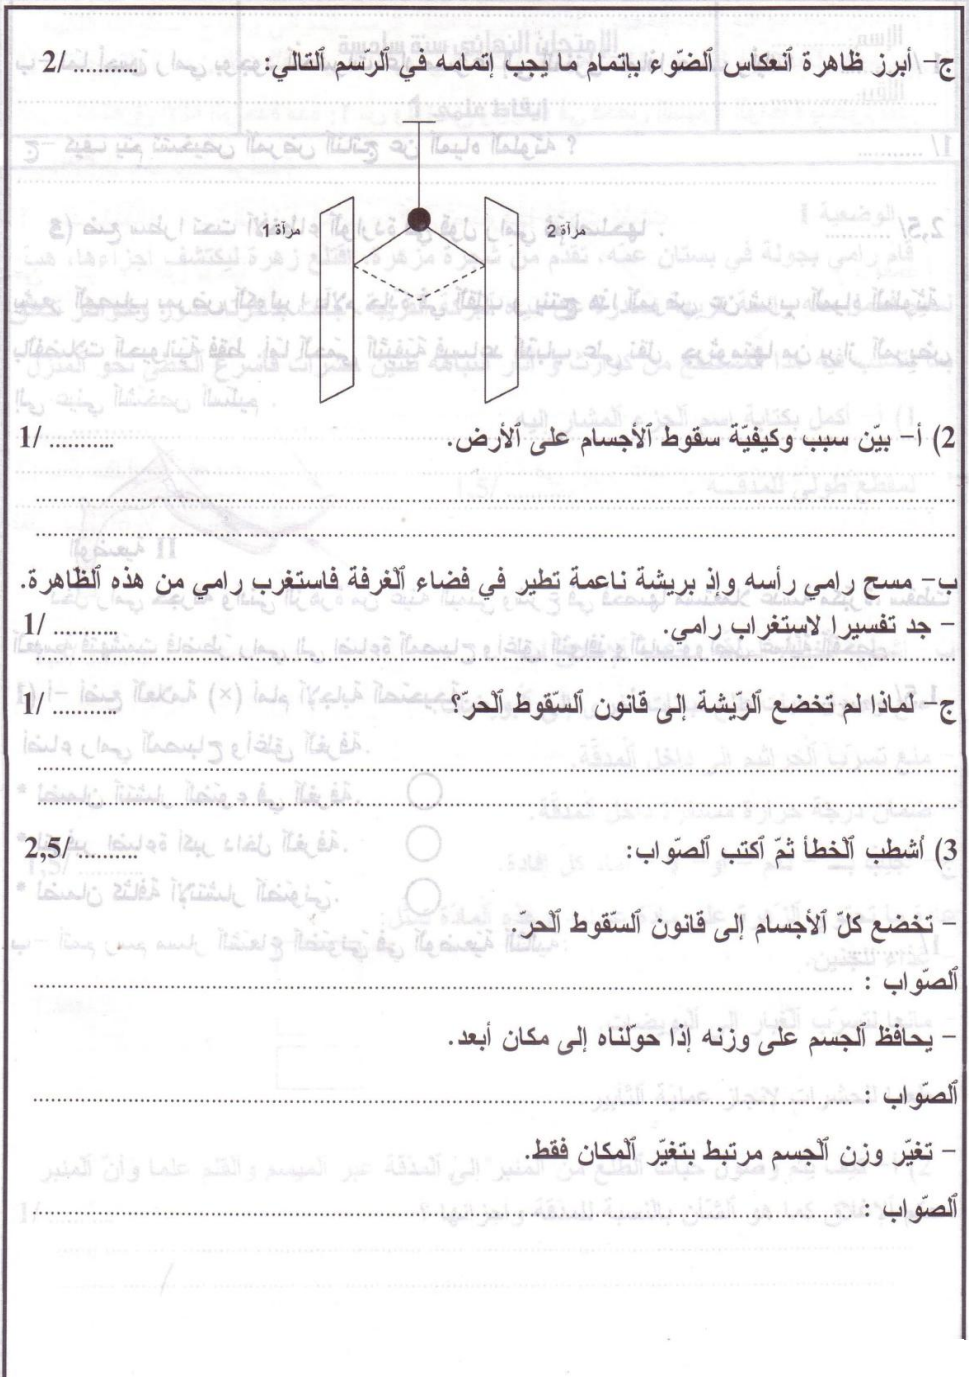 ج- أبرز ظاهرة ٱنعكاس ٱلضّوء بإتمام ما يجب إتمامه في ٱلرّسم ٱلتالي: ........... /2
مرآة 1
مرآة 2
2) أ- بيّن سبب وكيفيّة سقوط ٱلأجسام على ٱلأرض. ........... /1
ب- مسح رامي رأسه وإذ بريشة ناعمة تطير في فضاء ٱلغرفة فاستغرب رامي من هذه ٱلظاهرة.
- جد تفسيرا لاستغراب رامي. ........... /1
ج- لماذا لم تخضع ٱلرّيشة إلى قانون ٱلسّقوط ٱلحرّ؟ ........... /1
3) أشطب ٱلخطأ ثمّ ٱكتب ٱلصّواب: .......... /2,5
- تخضع كلّ ٱلأجسام إلى قانون ٱلسّقوط ٱلحرّ.
ٱلصّواب :
- يحافظ ٱلجسم على وزنه إذا حوّلناه إلى مكان أبعد.
ٱلصّواب :
- تغيّر وزن ٱلجسم مرتبط بتغيّر ٱلمكان فقط.
ٱلصّواب :